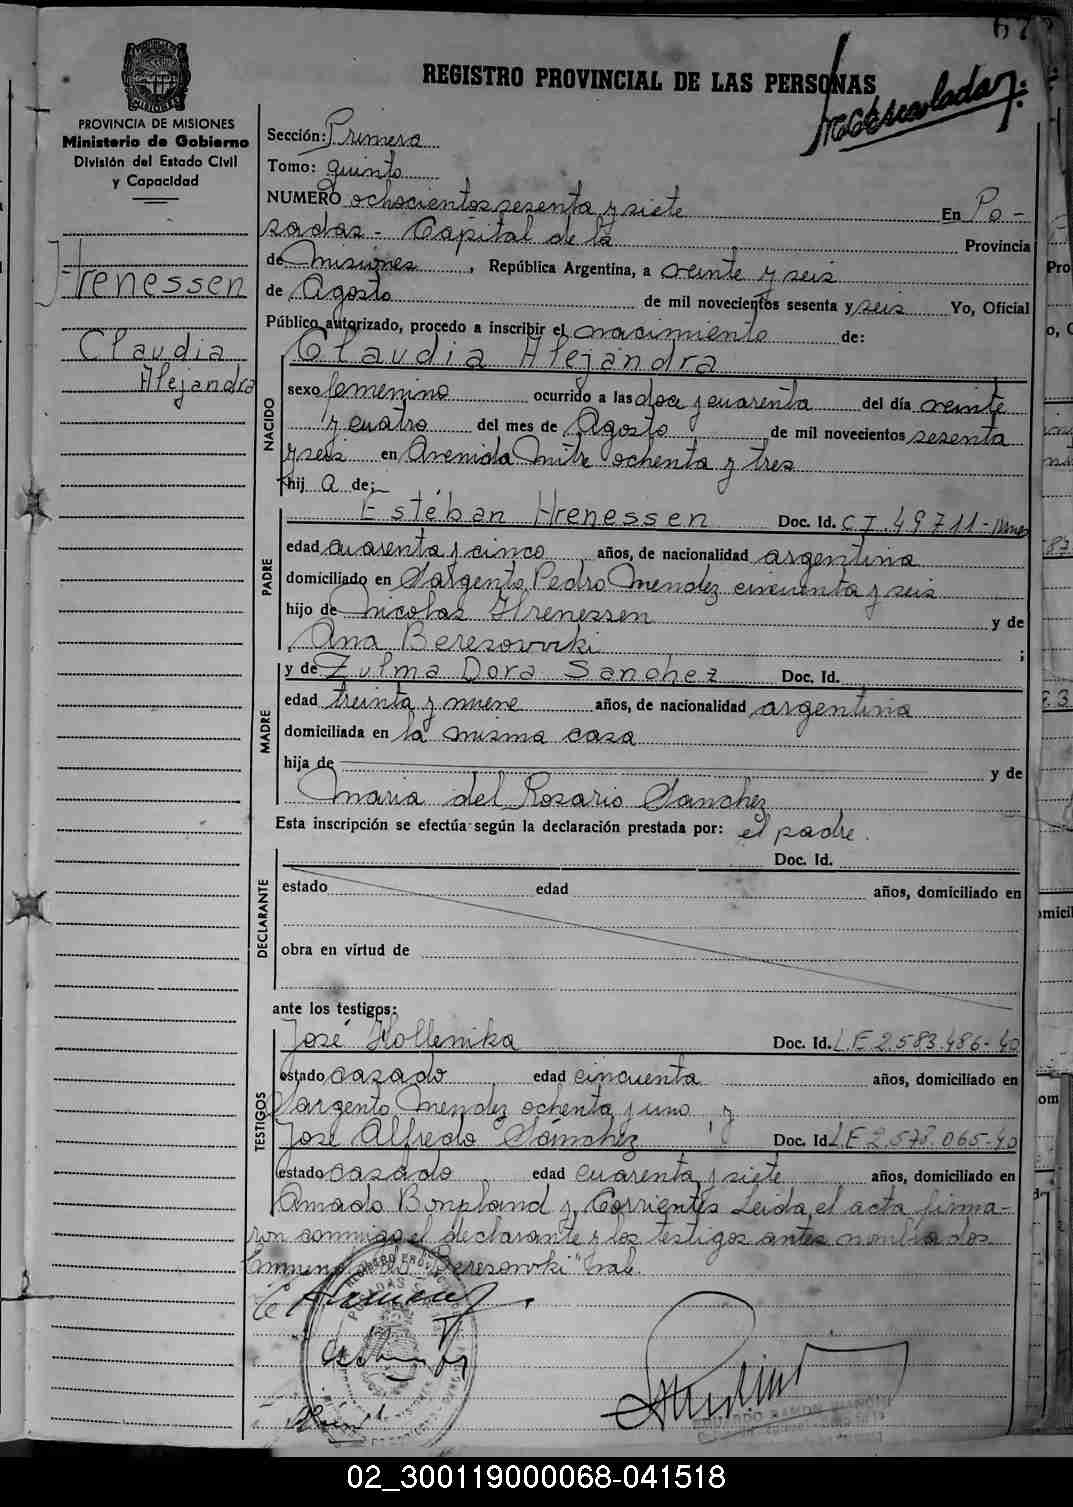 67
REGISTRO PROVINCIAL DE LAS PERSONAS
PROVINCIA DE MISIONES
Ministerio de Gobierno
División del Estado Civil
y Capacidad
Sección: Primera
Tomo: quinto
NUMERO ochocientos sesenta y siete En Po-
sadas - Capital de la Provincia
de Misiones, República Argentina, a veinte y seis
de Agosto de mil novecientos sesenta y seis Yo, Oficial
Público autorizado, procedo a inscribir el nacimiento de:
Hrenessen
Claudia
Alejandra
Claudia Alejandra
NACIDO
sexo femenino ocurrido a las doce y cuarenta del día veinte
y cuatro del mes de Agosto de mil novecientos sesenta
y seis en Avenida Mitre ochenta y tres
hij a de:
PADRE
Estéban Hrenessen Doc. Id. CI. 49711-
edad cuarenta y cinco años, de nacionalidad argentina
domiciliado en Sargento Pedro Mendez cincuenta y seis
hijo de Nicolas Hrenessen y de
Ana Beresowski ;
MADRE
y de Zulma Dora Sanchez Doc. Id.
edad treinta y nueve años, de nacionalidad argentina
domiciliada en la misma casa
hija de y de
Maria del Rosario Sanchez
Esta inscripción se efectúa según la declaración prestada por: el padre.
DECLARANTE
Doc. Id.
estado edad años, domiciliado en
obra en virtud de
ante los testigos:
TESTIGOS
José Hollenika Doc. Id. L.E 2.583.486-40
estado casado edad cincuenta años, domiciliado en
Sargento Mendez ochenta y uno y
José Alfredo Sánchez Doc. Id L.E 2.578.065-40
estado casado edad cuarenta y siete años, domiciliado en
Amado Bonpland y Corrientes Leida el acta firma-
ron conmigo el declarante y los testigos antes nombrados
Beresowski
02_300119000068-041518